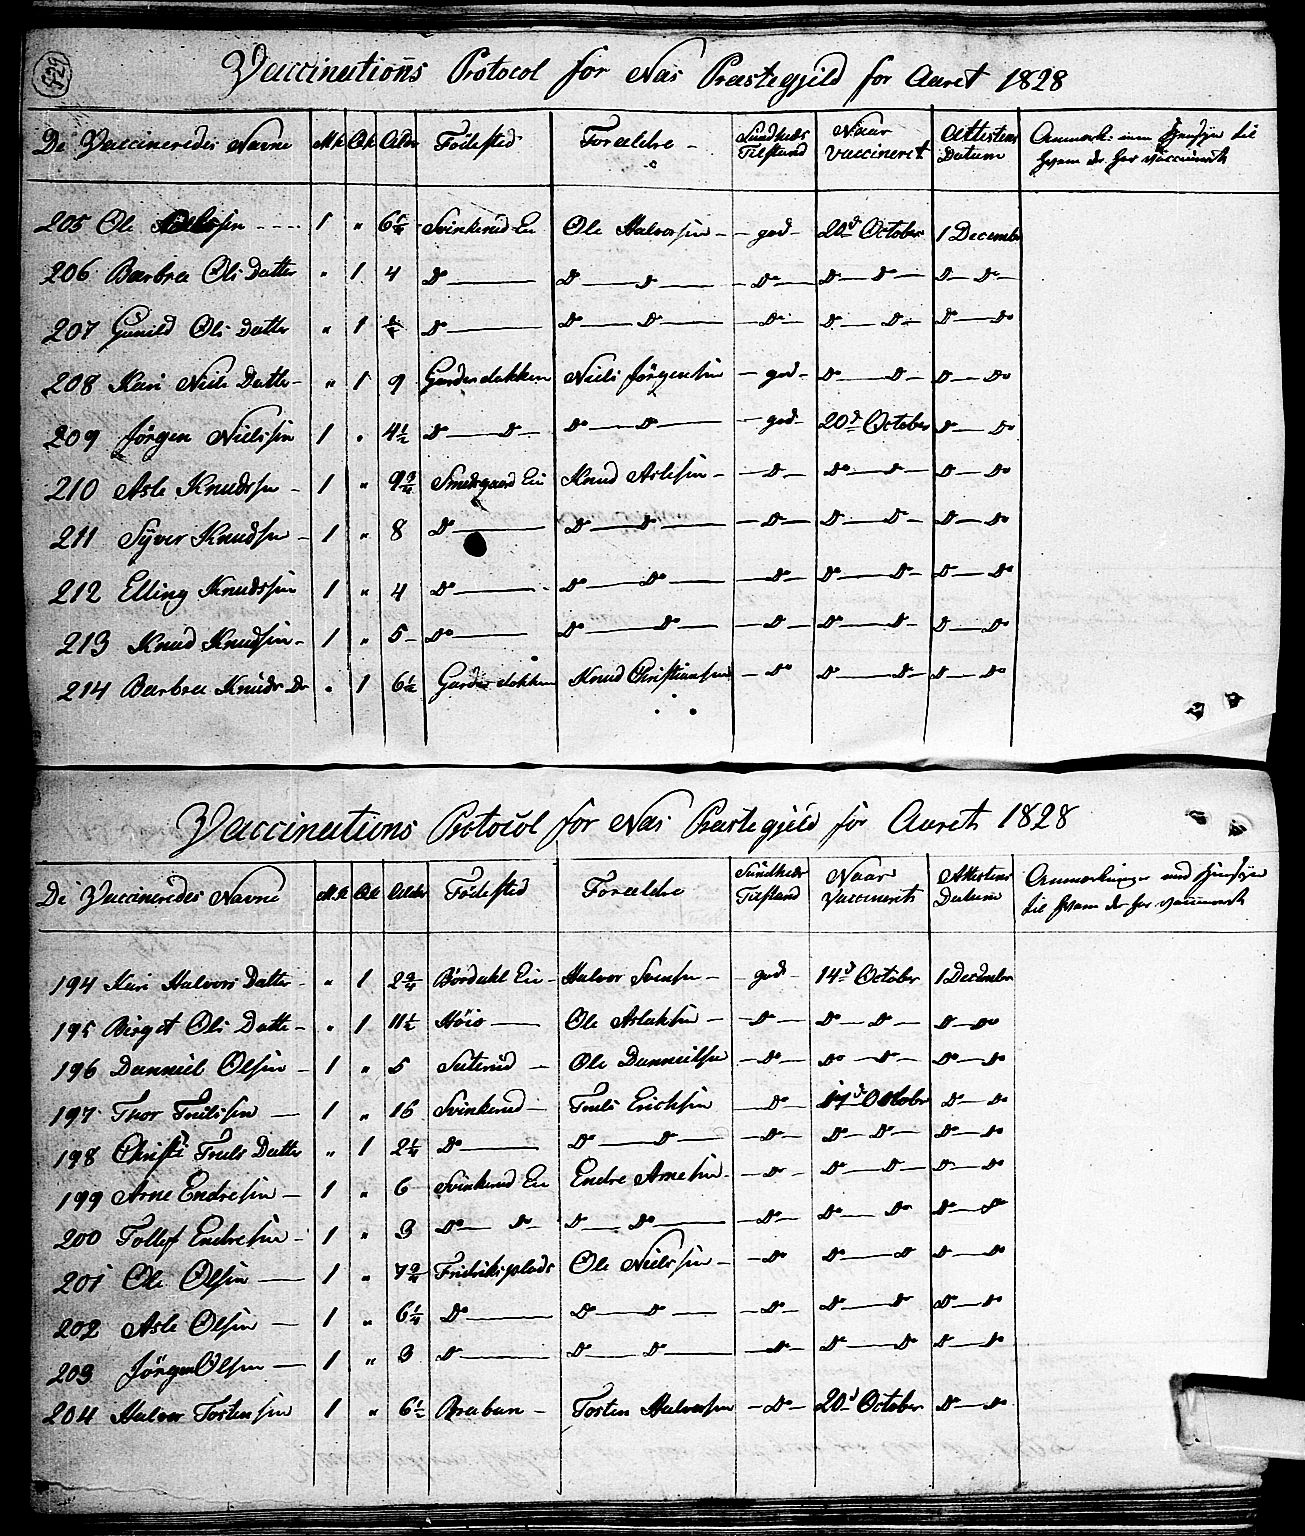 429
Vaccinations Protocol for Næs Præstegjeld for Aaret 1828
De Vaccineredes Navne M.k Q.k Alder Födested Forældre Sundheds Tilstand Naar vaccineret Attestens Datum Anmærk: med Hensyn til hvem der har vaccineret
205 Ole - - - - 1 " 6 1/4 Svinkerud Ei Ole Halvorsen - - god - 20d October 1 Decembr
206 Barbra Ols Datter " 1 4 do do do do do do do do
207 Gunild Ols Datter " 1 do do do do do do do do
208 Kari Niels Datter - " 1 9 Garderdokken Niels Jörgensen - god - do do do do
209 Jörgen Nielssen 1 " 4 1/2 do do do do - god - 20d October do do
210 Asle Knudssen - 1 " 9 3/4 Smedsgaard Ei Knud Aslesen - do do do do do
211 Syver Knudsen - 1 " 8 do do do do do do do do
212 Elling Knudssen 1 " 4 do do do do do do do do
213 Knud Knudsen - 1 " 5 - do do do do do do do do
214 Barbra Knuds Dr " 1 6 1/2 Garderdokken Knud Christiansen - do do do do do
Vaccinations Protocol for Næs Præstegjeld for Aaret 1828
De Vaccineredes Navne M.k Q.k Alder Födested Forældre Sundheds Tilstand Naar Vaccineret Attestens Datum Anmærkninger med Hensyn til hvem der har vaccineret
194 Kari Halvors Datter - " 1 2 3/4 Bördahl Ei - Halvor Svensen - god - 14d October 1 December
195 Birget Ols Datte - " 1 11 1/2 Höio Ole Aslaksen - do do do do do
196 Danniel Olsen - 1 " 5 Seterud - Ole Dannielsen do do do do do
197 Thor Trulssen 1 " 16 Svinkerud - Truls Erichsen do 17d October do do
198 Christi Truls Datter " 1 2 1/4 do do do do do do do do
199 Arne Endresen - 1 " 6 Svinkerud Ei Endre Arnesen - do do do do do
200 Tollef Endresen - 1 " 3 do do do do do do do do do
201 Ole Olsen 1 " 7 3/4 Fridriksplads Ole Nielssen - do do do do do
202 Asle Olsen 1 " 6 1/4 do do do do do do do do
203 Jörgen Olsen 1 " 3 do do do do do do do do
204 Halvor Tostensen 1 " 6 1/2 Braban - Tosten Halvorsen - do 20d October do do